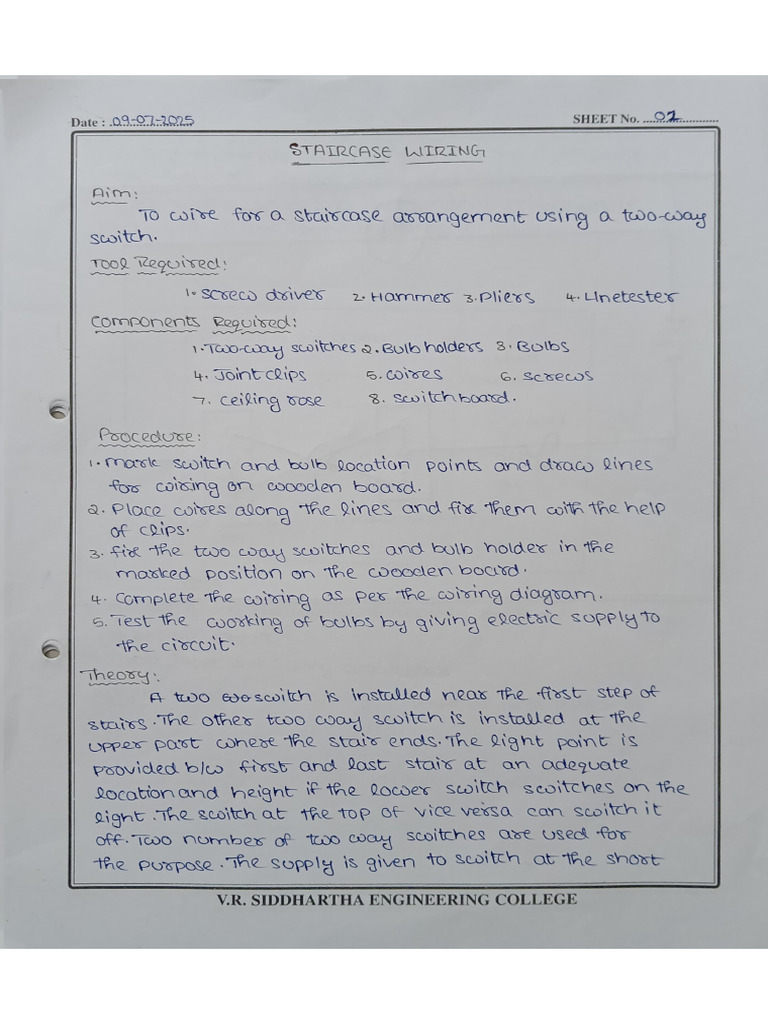 Date : 09-07-2025 SHEET No. 02
STAIRCASE WIRING
Aim:
To wire for a staircase arrangement using a two-way
switch.
Tool Required:
1. Screw driver 2. Hammer 3. Pliers 4. Linetester
Components Required:
1. Two-way switches 2. Bulb holders 3. Bulbs
4. Joint clips 5. Wires 6. Screws
7. Ceiling rose 8. Switch board.
Procedure:
1. Mark switch and bulb location points and draw lines
for wiring on wooden board.
2. Place wires along the lines and fix them with the help
of clips.
3. Fix the two way switches and bulb holder in the
marked position on the wooden board.
4. Complete the wiring as per the wiring diagram.
5. Test the working of bulbs by giving electric supply to
the circuit.
Theory:
A two switch is installed near the first step of
stairs. The other two way switch is installed at the
upper part where the stair ends. The light point is
provided b/w first and last stair at an adequate
location and height if the lower switch switches on the
light. The switch at the top of vice versa can switch it
off. Two number of two way switches are used for
the purpose. The supply is given to switch at the short
V.R. SIDDHARTHA ENGINEERING COLLEGE